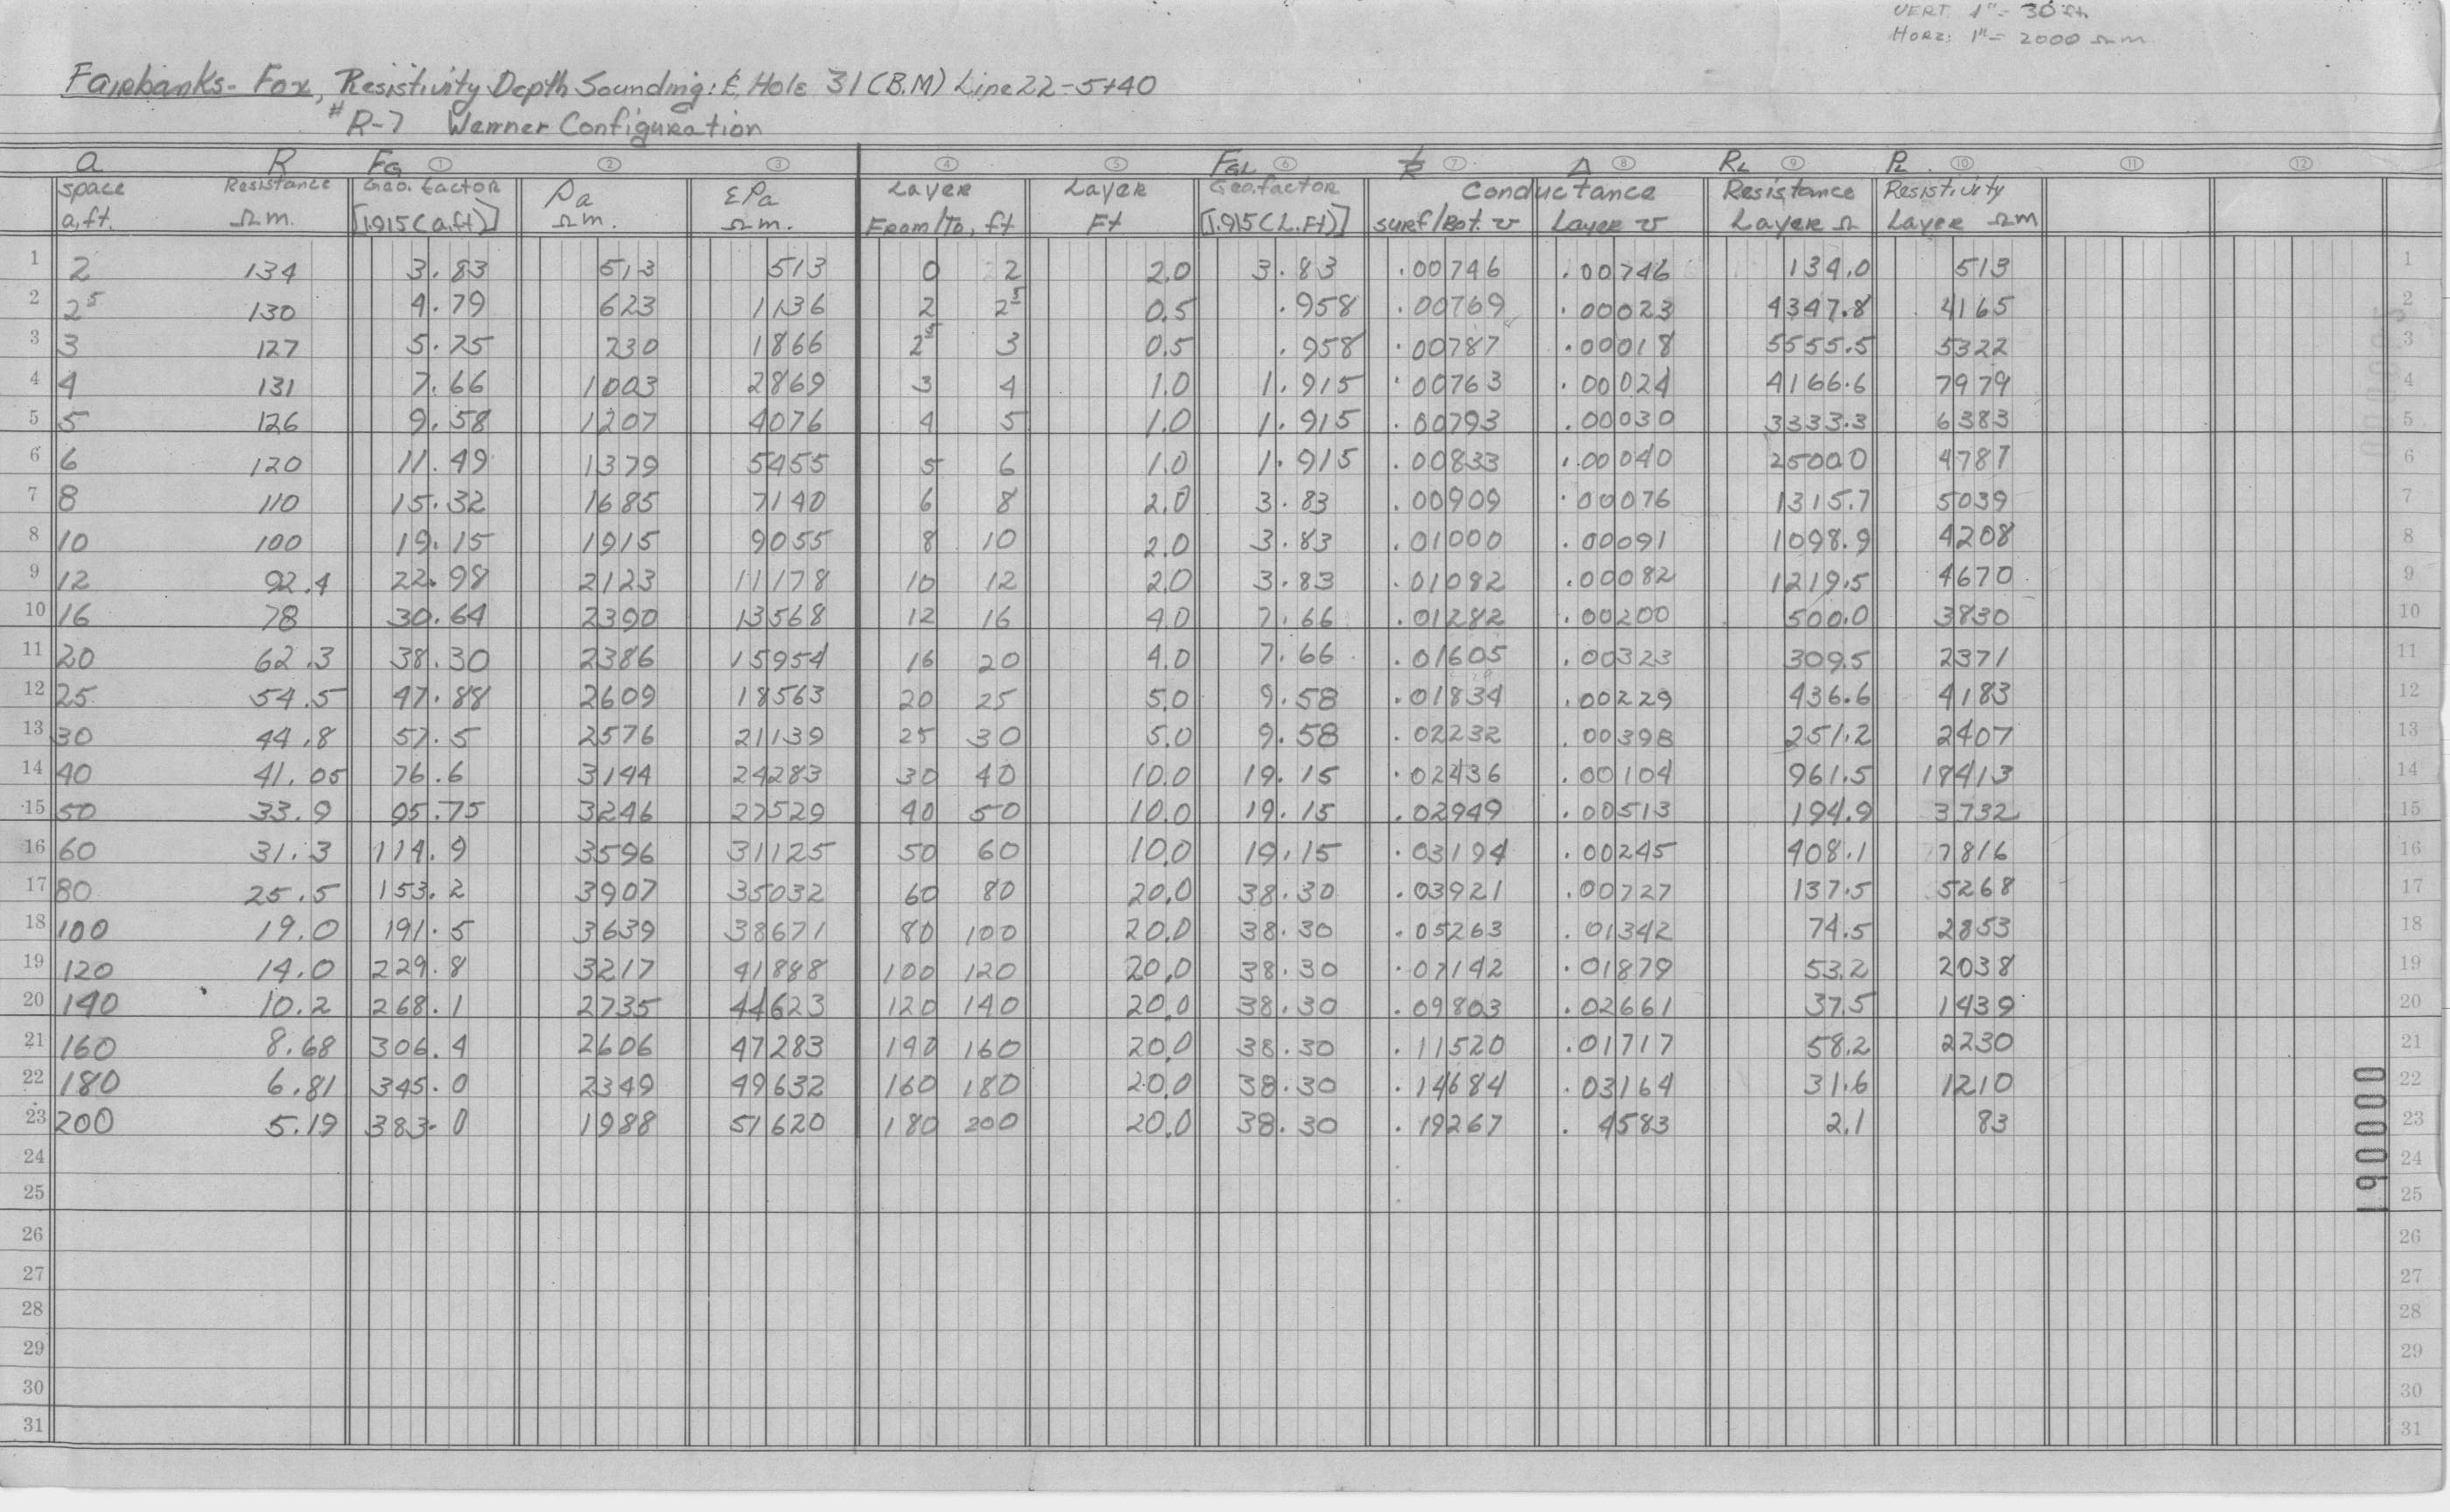 VERT. 1"= 30 ft.
HORZ: 1"= 2000 Ωm
Fairbanks-Fox, Resistivity Depth Sounding: & Hole 31 (B.M) Line 22-5+40
#R-7 Wenner Configuration
a R FG 1 2 3 4 5 FGL 6 1/R 7 Δ 8 RL 9 PL 10 11 12
space Resistance Geo. factor ρa Σρa Layer Layer Geo. factor Conductance Resistance Resistivity
a, ft. Ωm. [1.915(a.ft)] Ωm. Ωm. From/To, ft Ft [1.915(L.Ft)] surf/Bot. ʊ Layer ʊ Layer Ω Layer Ωm
1 2 134 3.83 513 513 0 2 2.0 3.83 .00746 .00746 134.0 513 1
2 2⁵ 130 4.79 623 1136 2 2⁵ 0.5 .958 .00769 .00023 4347.8 4165 2
3 3 127 5.75 730 1866 2⁵ 3 0.5 .958 .00787 .00018 5555.5 5322 3
4 4 131 7.66 1003 2869 3 4 1.0 1.915 .00763 .00024 4166.6 7979 4
5 5 126 9.58 1207 4076 4 5 1.0 1.915 .00793 .00030 3333.3 6383 5
6 6 120 11.49 1379 5455 5 6 1.0 1.915 .00833 .00040 2500.0 4787 6
7 8 110 15.32 1685 7140 6 8 2.0 3.83 .00909 .00076 1315.7 5039 7
8 10 100 19.15 1915 9055 8 10 2.0 3.83 .01000 .00091 1098.9 4208 8
9 12 92.4 22.98 2123 11178 10 12 2.0 3.83 .01082 .00082 1219.5 4670 9
10 16 78 30.64 2390 13568 12 16 4.0 7.66 .01282 .00200 500.0 3830 10
11 20 62.3 38.30 2386 15954 16 20 4.0 7.66 .01605 .00323 309.5 2371 11
12 25 54.5 47.88 2609 18563 20 25 5.0 9.58 .01834 .00229 436.6 4183 12
13 30 44.8 57.5 2576 21139 25 30 5.0 9.58 .02232 .00398 251.2 2407 13
14 40 41.05 76.6 3144 24283 30 40 10.0 19.15 .02436 .00104 961.5 18413 14
15 50 33.9 95.75 3246 27529 40 50 10.0 19.15 .02949 .00513 194.9 3732 15
16 60 31.3 114.9 3596 31125 50 60 10.0 19.15 .03194 .00245 408.1 7816 16
17 80 25.5 153.2 3907 35032 60 80 20.0 38.30 .03921 .00727 137.5 5268 17
18 100 19.0 191.5 3639 38671 80 100 20.0 38.30 .05263 .01342 74.5 2853 18
19 120 14.0 229.8 3217 41888 100 120 20.0 38.30 .07142 .01879 53.2 2038 19
20 140 10.2 268.1 2735 44623 120 140 20.0 38.30 .09803 .02661 37.5 1439 20
21 160 8.68 306.4 2606 47283 140 160 20.0 38.30 .11520 .01717 58.2 2230 21
22 180 6.81 345.0 2349 49632 160 180 20.0 38.30 .14684 .03164 31.6 1210 22
23 200 5.19 383.0 1988 51620 180 200 20.0 38.30 .19267 .4583 2.1 83 23
24 24
25 25
26 26
27 27
28 28
29 29
30 30
31 31
190000